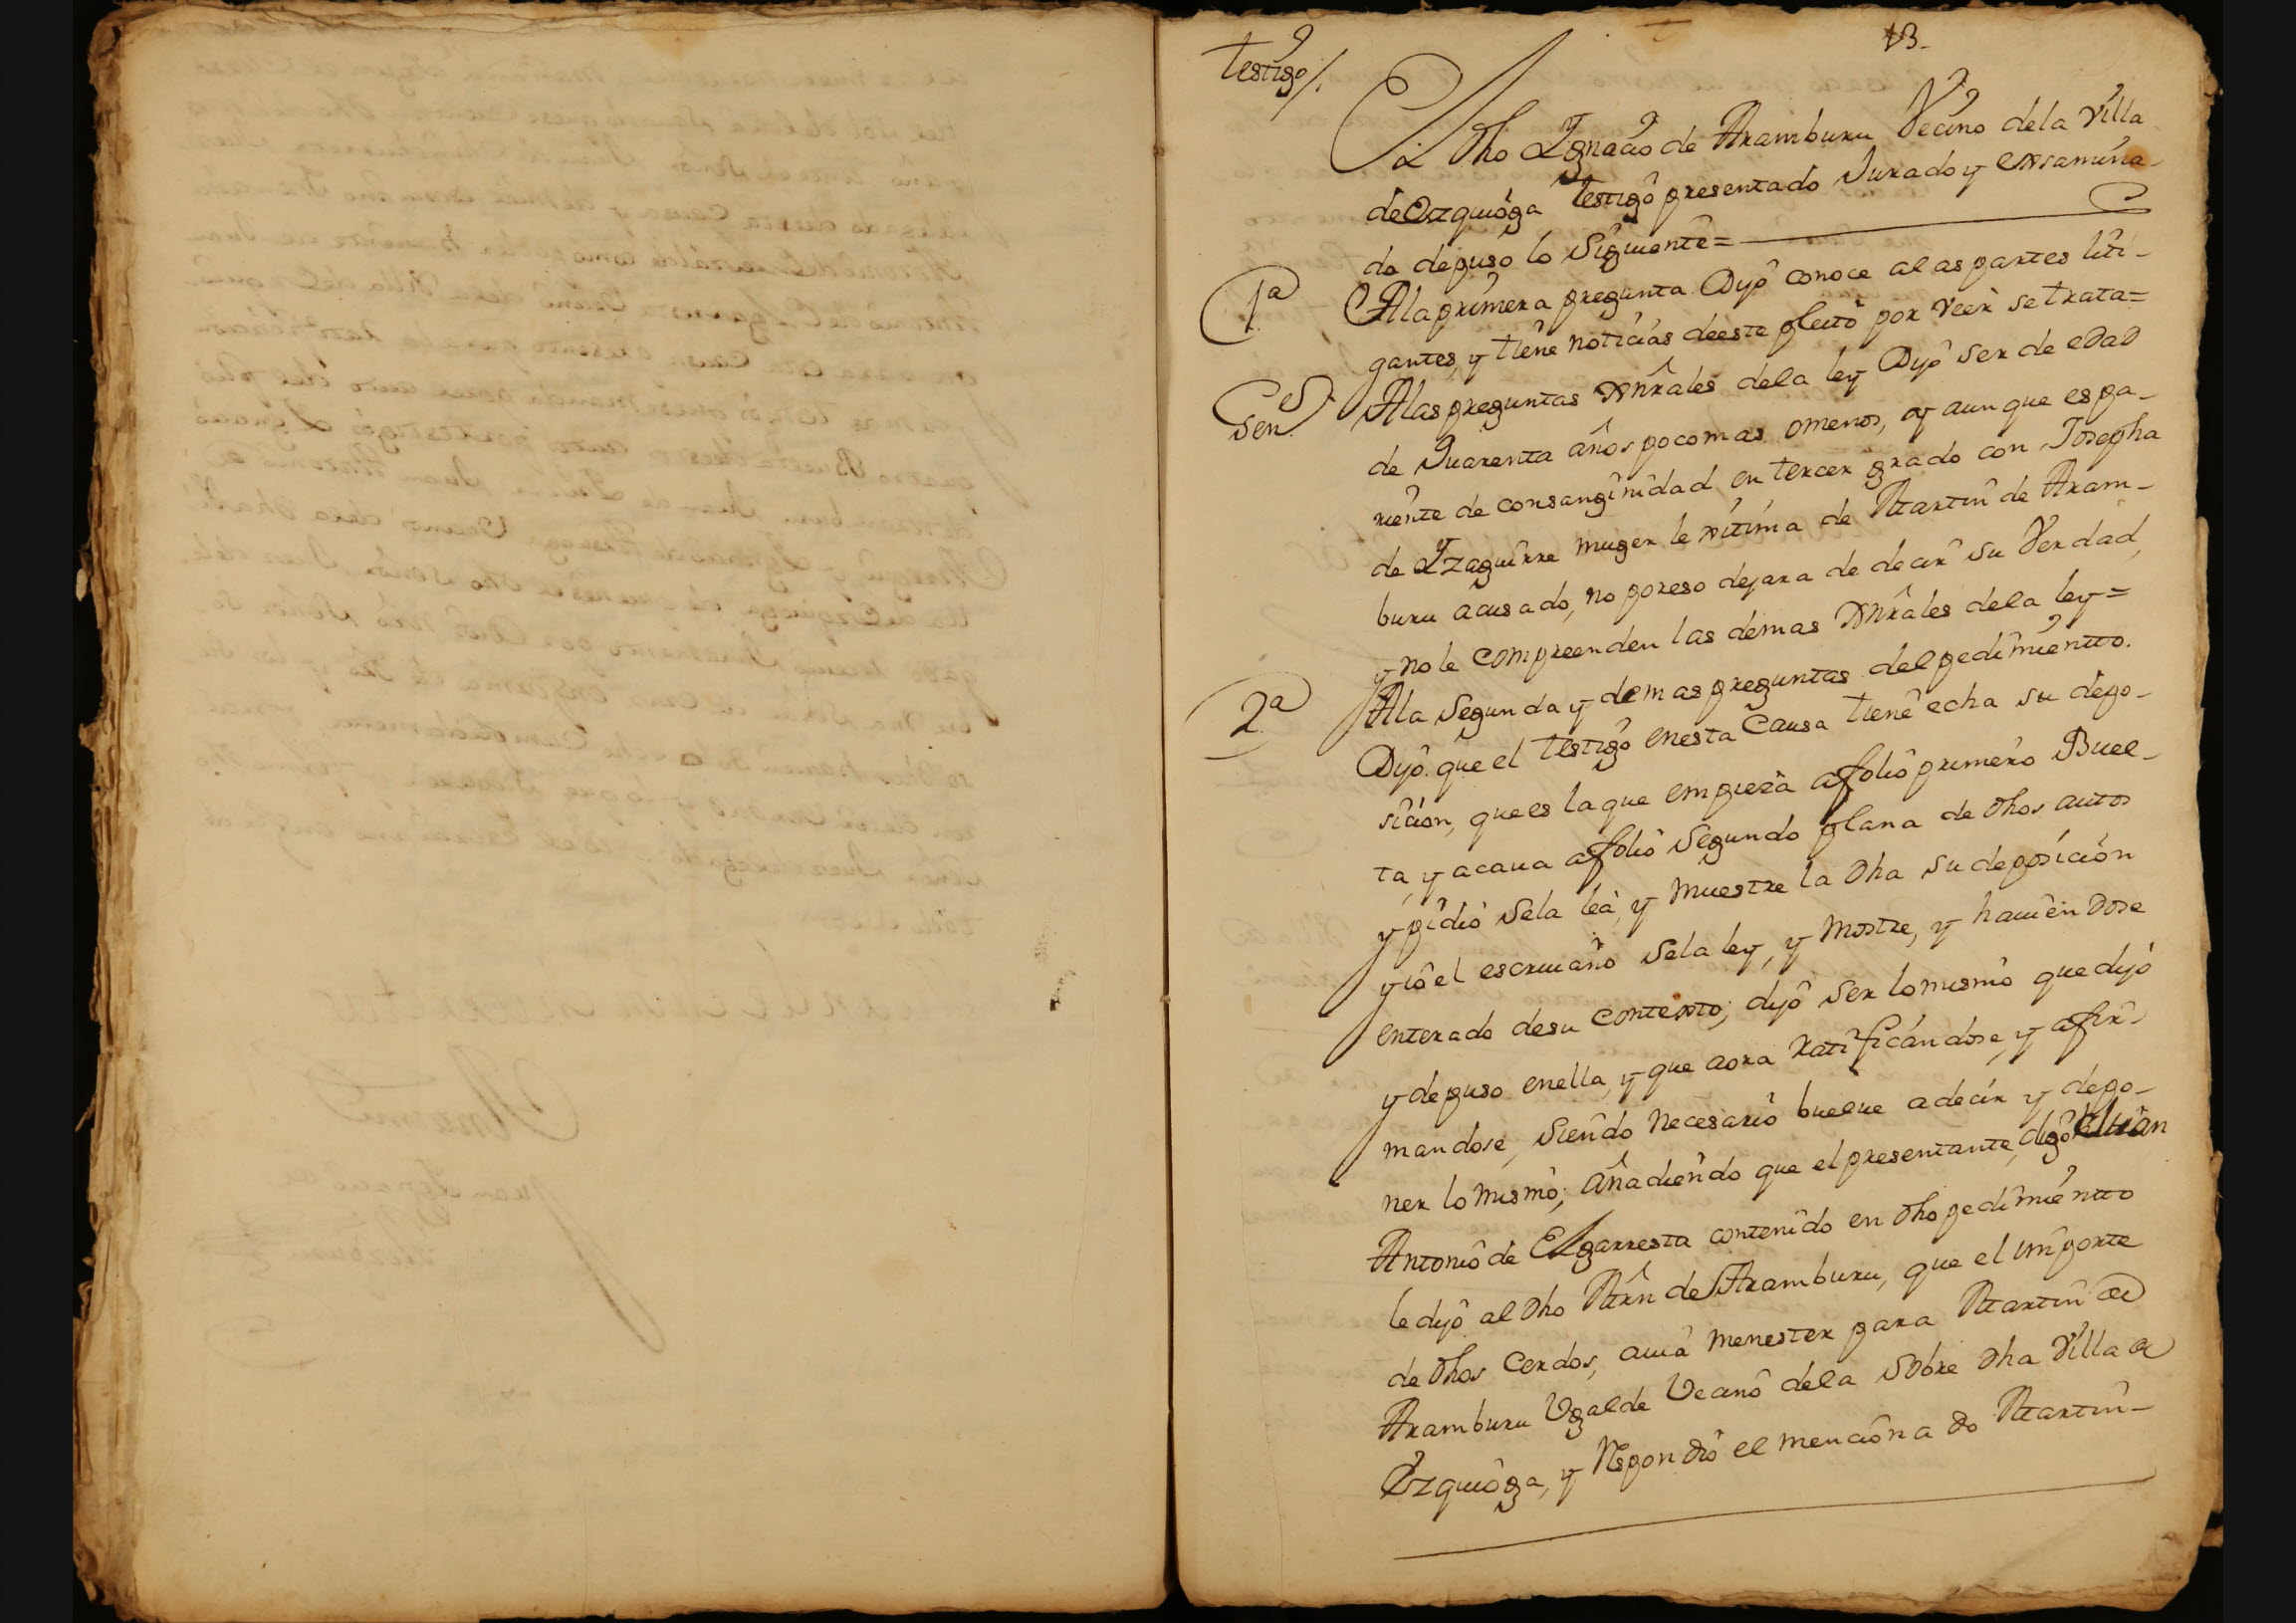 testigo/.
13.
El Dho Ygnacio de Aramburu Vecino dela Villa
de Ezquioga testigo presentado Jurado y exsamina-
do depuso lo Siguiente=
1ª
Ala primera pregunta Dijo conoce alas partes liti-
gantes, y tiene noticias deeste pleito por veer se trata=
Gen.s
Alas preguntas Gnrales dela ley Dijo ser de edad
de quarenta años poco mas omenos, y aunque es pa-
riente de consanginidad en tercer grado con Josepha
de Yzaguirre muger lexitima de Martin de Aram-
buru acusado, no poreso dejara de decir su Verdad,
y nole compreenden las demas Gnrales dela ley=
2ª
Ala Segunda y demas preguntas del pedimientto.
Dijo que el testigo enesta Causa tiene echa su depo-
sicion, que es la que empieza afolio primero Buel-
ta, y acaua afolio Segundo plana de dhos autos
y pidio Sela lea, y muestre la dha su deposicion
y io el escriuano Sela ley, y mostre, y hauiendose
enterado desu contexto; dijo ser lo mismo que dijo
y depuso enella, y que aora ratificandose, y afir-
mandose, siendo necesario buelue adecir y depo-
ner lo mismo; añadiendo que el presentante, digo Julian
Antonio de Elgarresta contenido en dho pedimientto
le dijo al dho Mrn de Aramburu, que el importe
de dhos Cerdos, auia menester para Martin de
Aramburu Ugalde Vecino dela Sobre dha Villa de
Ezquioga, y Respondio el mencionado Martin-